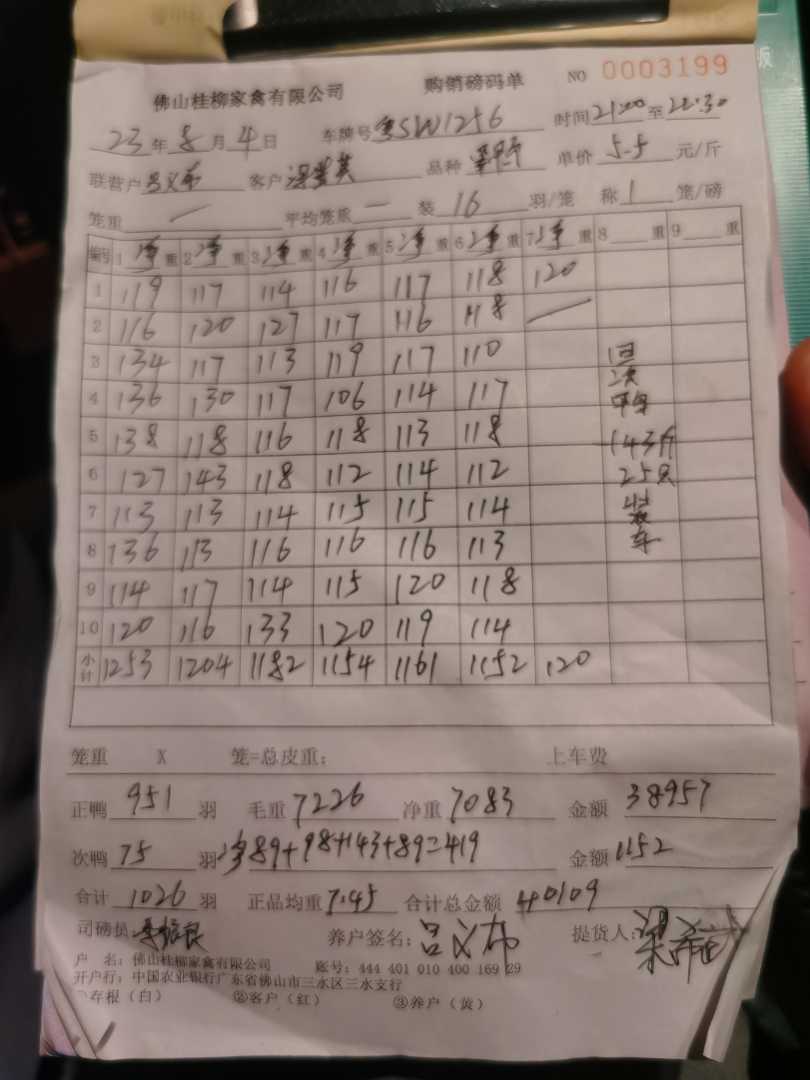 佛山桂柳家禽有限公司 购销磅码单 NO 0003199
23年8月4日 车牌号粤SW1256 时间21:00至22:30
联营户吕义布 客户 品种 单价5.5元/斤
笼重 — 平均笼重 — 装16羽/笼 称1笼/磅
编号 1净重 2净重 3净重 4净重 5净重 6净重 7净重 8重 9重
1 119 117 114 116 117 118 120
2 116 120 127 117 116 118 —
3 134 117 113 119 117 110
4 136 130 117 106 114 117
5 138 118 116 118 113 118
6 127 143 118 112 114 112
7 113 113 114 115 115 114
8 136 113 116 116 116 113
9 114 117 114 115 120 118
10 120 116 133 120 119 114
小计 1253 1204 1182 1154 1161 1152 120
回
次
143斤
25只
装
车
笼重 X 笼=总皮重: 上车费
正鸭951羽 毛重7226 净重7083 金额38957
次鸭75羽 净89+98+143+89=419 金额1152
合计1026羽 正品均重7.45 合计总金额40109
司磅员 养户签名:吕义布 提货人:梁
户 名:佛山桂柳家禽有限公司 账号:444 401 010 400 169 29
开户行:中国农业银行广东省佛山市三水区三水支行
①存根(白) ②客户(红) ③养户(黄)